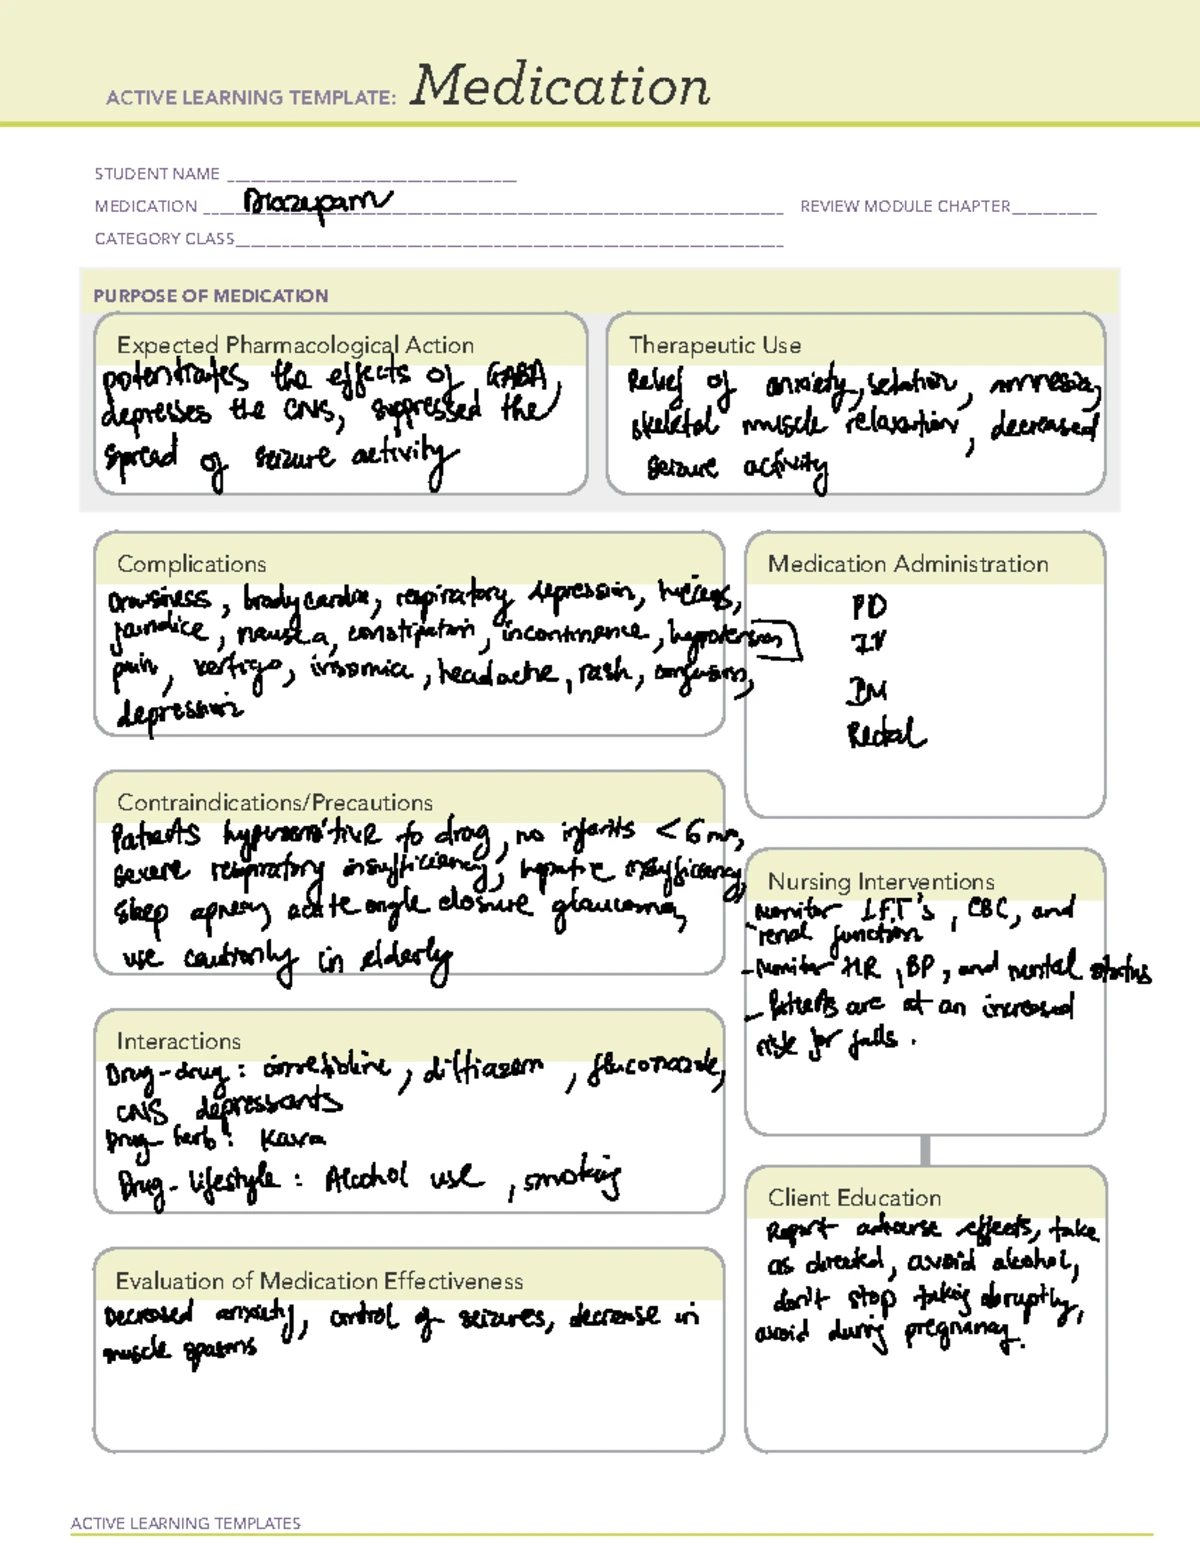 ACTIVE LEARNING TEMPLATE: Medication
STUDENT NAME
MEDICATION Diazepam REVIEW MODULE CHAPTER
CATEGORY CLASS
PURPOSE OF MEDICATION
Expected Pharmacological Action
potentiates the effects of GABA,
depresses the CNS, suppressed the
spread of seizure activity
Therapeutic Use
Relief of anxiety, sedation, amnesia,
skeletal muscle relaxation, decreased
seizure activity
Complications
Drowsiness, bradycardia, respiratory depression, hiccups,
jaundice, nausea, constipation, incontinence, hypotension
pain, vertigo, insomnia, headache, rash, confusion,
depression
Medication Administration
PO
IV
IM
Rectal
Contraindications/Precautions
Patients hypersensitive to drug, no infants < 6 mo,
severe respiratory insufficiency, hepatic insufficiency,
sleep apnea, acute angle closure glaucoma,
use cautionly in elderly
Nursing Interventions
Monitor LFT's, CBC, and
renal function
- Monitor HR, BP, and mental status
- Patients are at an increased
risk for falls.
Interactions
Drug-drug: cimetidine, diltiazem, fluconazole,
CNS depressants
Drug-herb: Kava
Drug-lifestyle: Alcohol use, smoking
Client Education
Report adverse effects, take
as directed, avoid alcohol,
don't stop taking abruptly,
avoid during pregnancy.
Evaluation of Medication Effectiveness
Decreased anxiety, control of seizures, decrease in
muscle spasms
ACTIVE LEARNING TEMPLATES